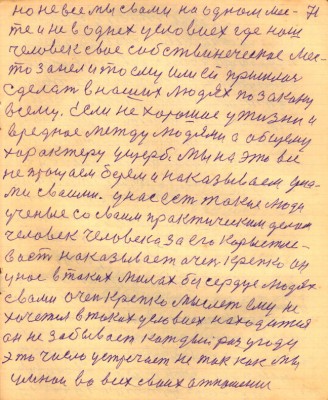 но не все мы с вами на одном ме- 71
те и не в однех условиех где наш
человек свое собственическое мес-
то занел и то ему или ей пришлос
сделат в наших людях по закону
всему. Если не хорошие у жизни и
вредное между людями а общему
характеру ущерб. Мы на это все
не прощаем берем и наказываем
ми своими. у нас ест такие люди
ученые со своим практическим делом
человек человека за его
вает наказывает очен крепко он
у нас в таких милых бу сердце людях
с вами очен крепко мыслет ему не
хочется в таких условиех находится
он не забывает каждый раз у году
это число устречает не так как мы
умной во всех своих отношении